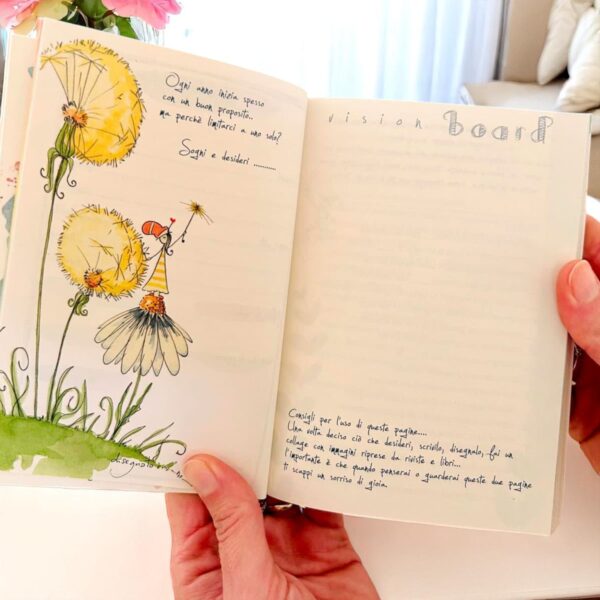 Ogni anno inizia spesso
con un buon proposito..
ma perchè limitarci a uno solo?
Sogni e desideri ..........
vision board
Consigli per l'uso di queste pagine....
Una volta deciso ciò che desideri, scrivilo, disegnalo, fai un
collage con immagini riprese da riviste e libri...
l'importante è che quando penserai o guarderai queste due pagine
ti scappi un sorriso di gioia.